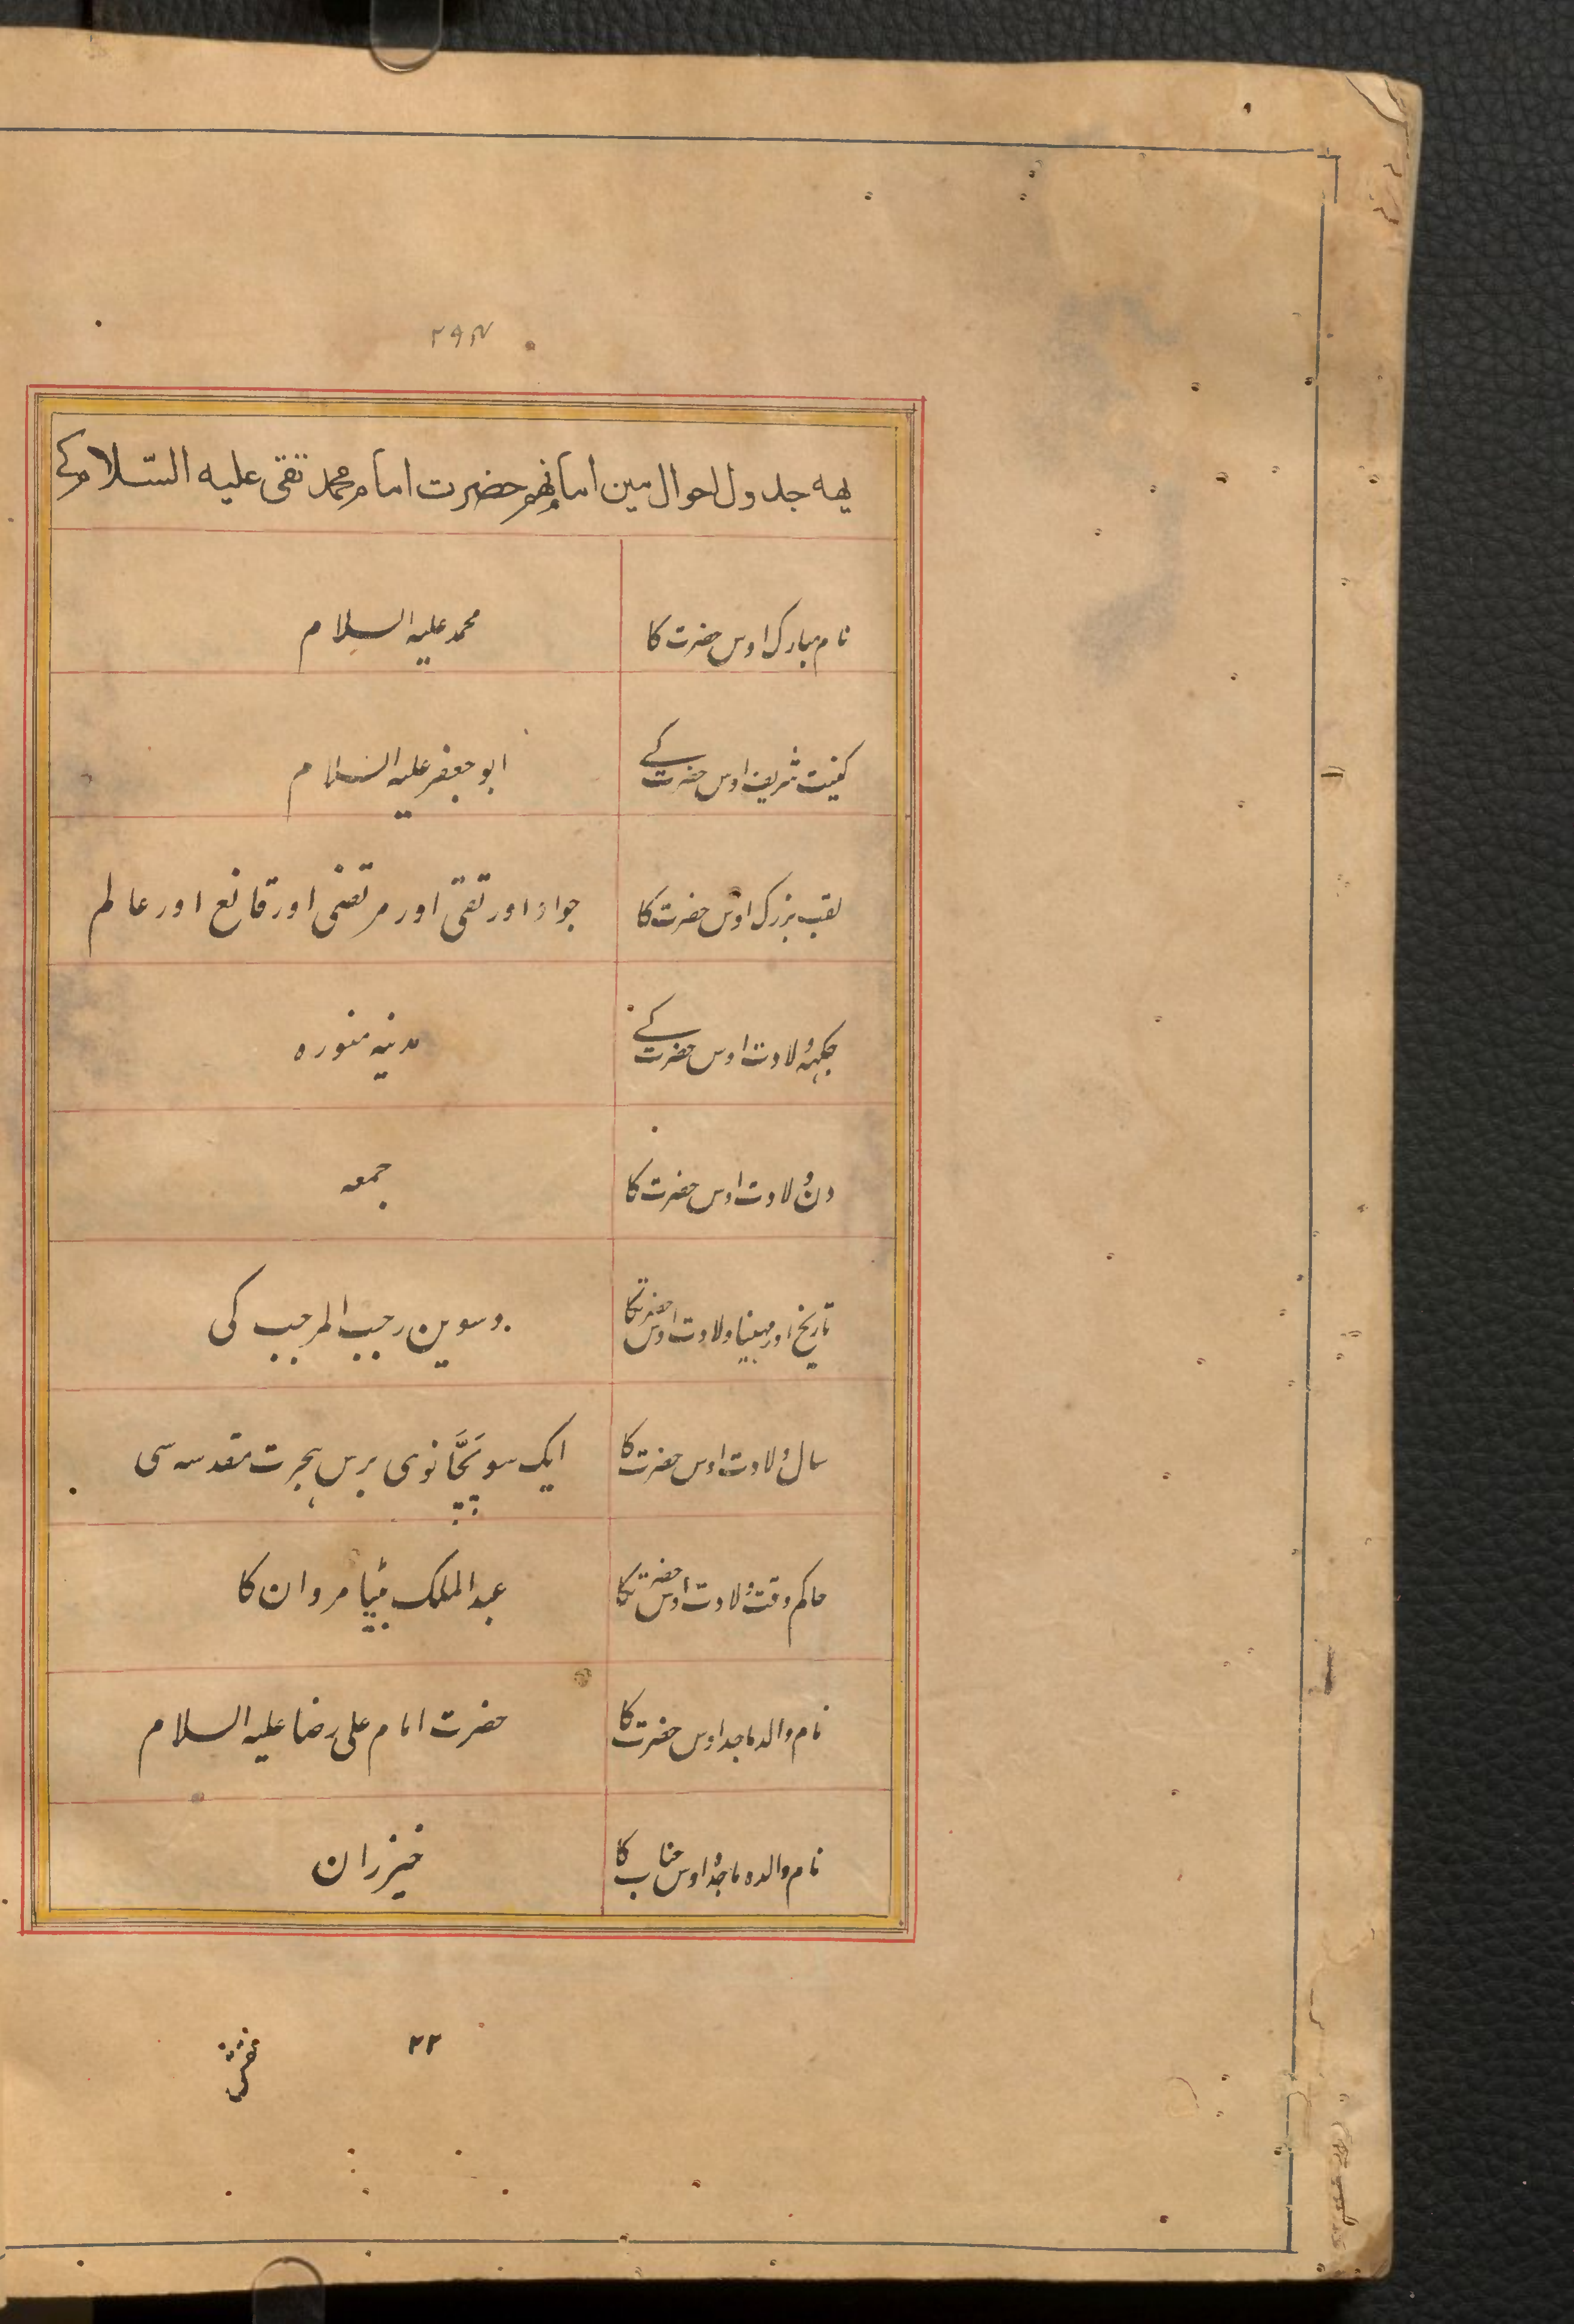 یهه جدول احوال مین امام نهم حضرت امام محمد تقی علیه السّلام کے
نام مبارک اوس حضرت کا محمد علیہ السلام
کنیت شریف اوس حضرت کے ابو جعفر علیہ السلام
لقب بزرک اوس حضرت کا جواد اور تقی اور مرتضی اور قانع اور عالم
جکہہ ولادت اوس حضرت کے مدنیہ منورہ
دن ولادت اوس حضرت کا جمعہ
تاریخ اور مہینا ولادت اوس حضرت کا دسوین رجب المرجب کی
سال ولادت اوس حضرت کا ایک سو پَچَّانوی برس ہجرت مقدسہ سی
حاکم وقت ولادت اوس حضرت کا عبد الملک بیٹا مروان کا
نام والد ماجد اوس حضرت کا حضرت امام علی رضا علیہ السلام
نام والدہ ماجدہ اوس جناب کا خیزران
۲۲
نقش